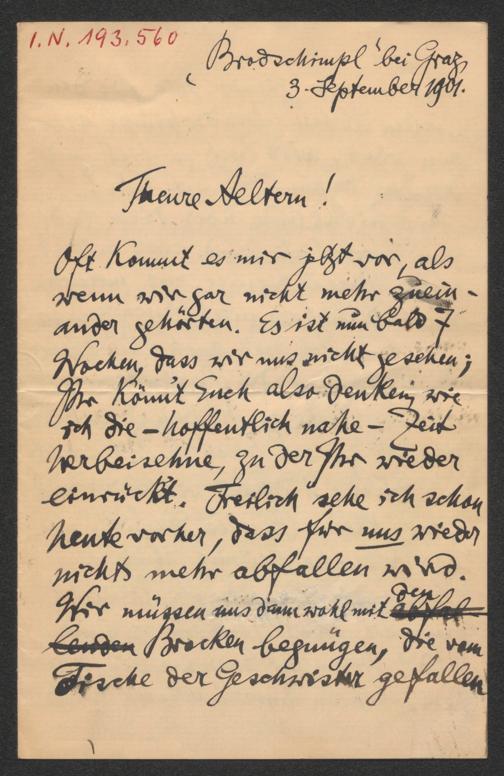 I.N. 193.560
„Brodschimpl" bei Graz
3. September 1901.
Theure Aeltern!
Oft kommt es mir jetzt vor, als
wenn wir gar nicht mehr zuein-
ander gehörten. Es ist nun bald 7
Wochen, dass wir uns nicht gesehen;
Ihr könnt Euch also denken, wie
ich die – hoffentlich nahe – Zeit
herbeisehne, zu der Ihr wieder
einrückt. Freilich sehe ich schon
heute vorher, dass für uns wieder
nichts mehr abfallen wird.
Wir müssen uns dann wohl mit den abfal-
lenden Brocken begnügen, die vom
Tische der Geschwister gefallen